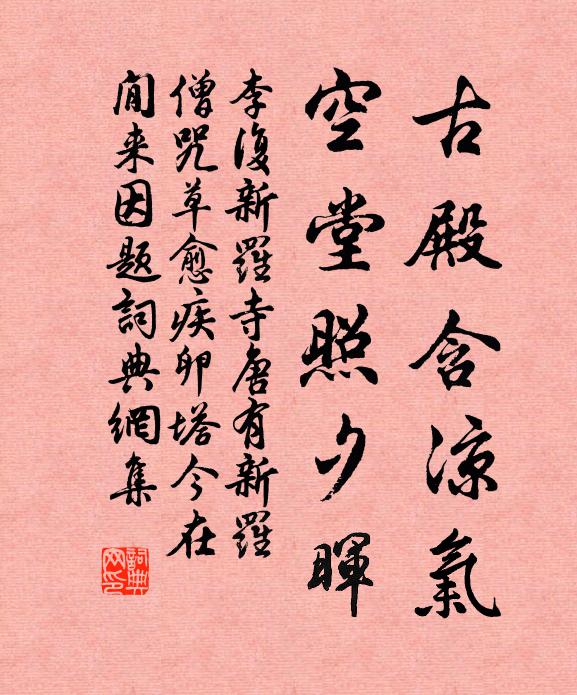 古殿含涼氣
空堂照夕暉
李復新羅寺唐有新羅
僧咒草愈疾卵塔今在
閒来因題詞典網集
詞典网印